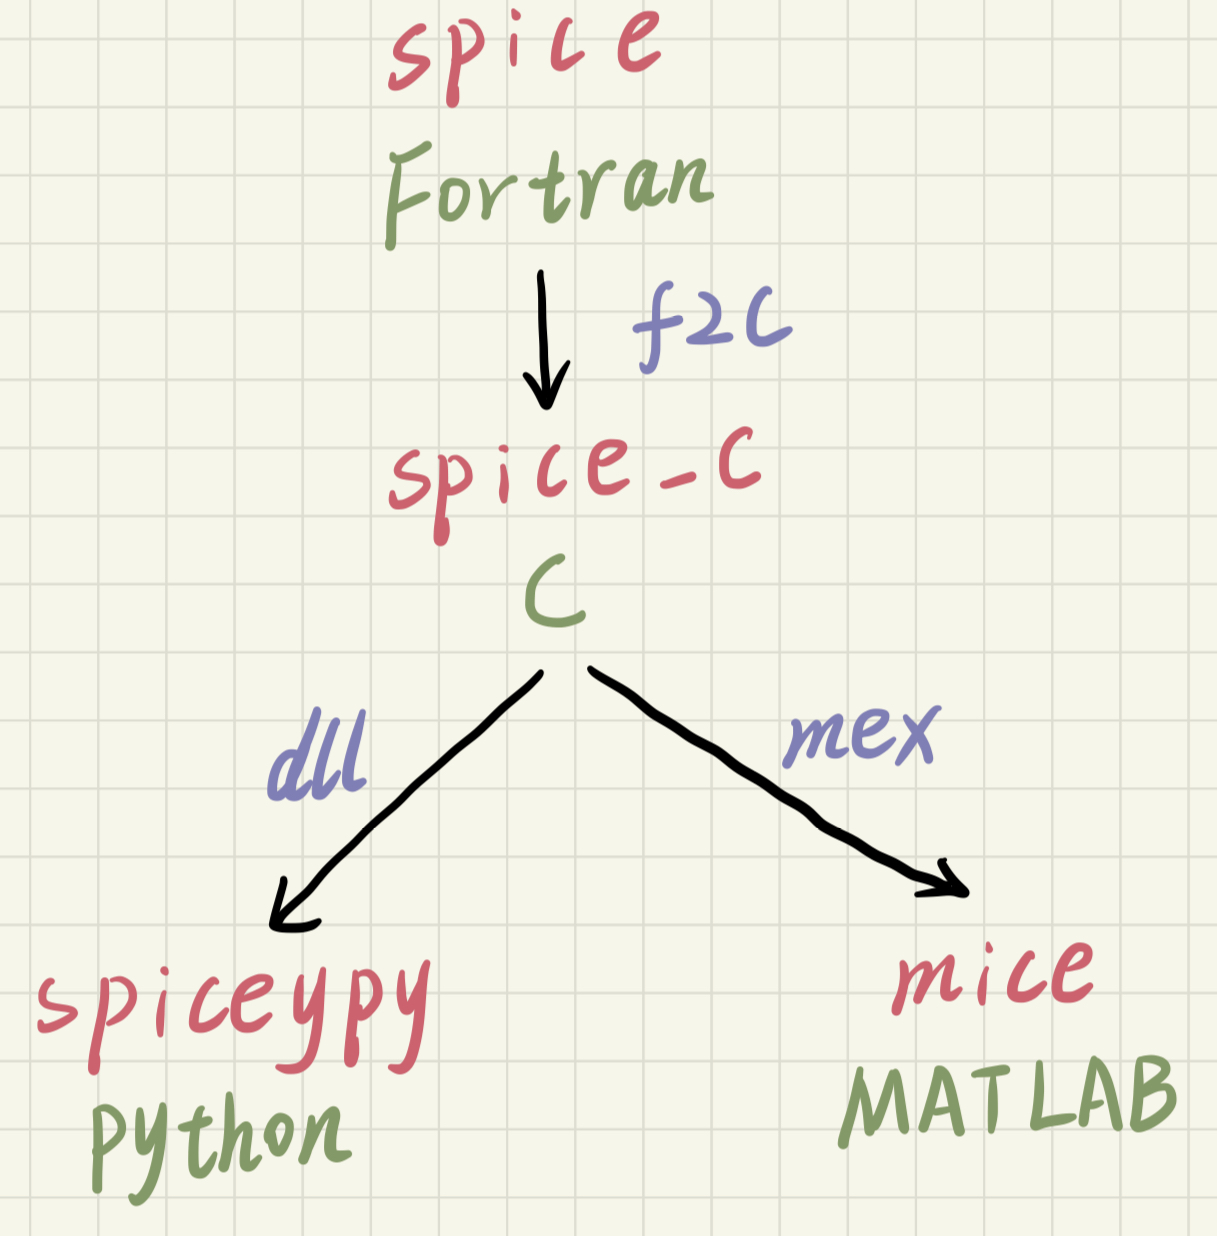 spice
Fortran
f2c
spice_C
C
dll
mex
spiceypy
python
mice
MATLAB